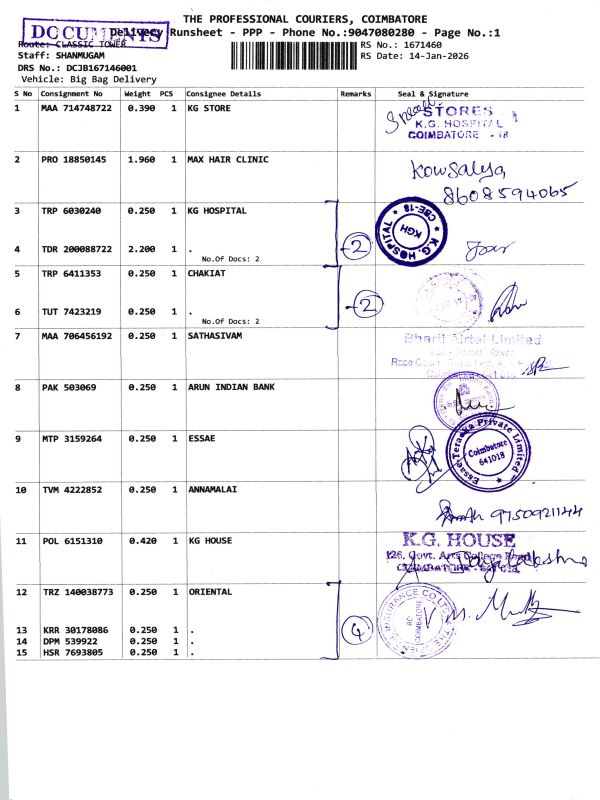 THE PROFESSIONAL COURIERS, COIMBATORE
DOCUMENTS
Delivery Runsheet - PPP - Phone No.:9047080280 - Page No.:1
Route: CLASSIC TOWER
RS No.: 1671460
Staff: SHANMUGAM
RS Date: 14-Jan-2026
DRS No.: DCJB167146001
Vehicle: Big Bag Delivery
S No Consignment No Weight PCS Consignee Details Remarks Seal & Signature
1 MAA 714748722 0.390 1 KG STORE
STORES
K.G. HOSPITAL
COIMBATORE - 18
2 PRO 18850145 1.960 1 MAX HAIR CLINIC
Kowsalya
8608594065
3 TRP 6030240 0.250 1 KG HOSPITAL
K.G. HOSPITAL CBE-18 KGH
2
4 TDR 200088722 2.200 1 .
No.Of Docs: 2
5 TRP 6411353 0.250 1 CHAKIAT
2
6 TUT 7423219 0.250 1 .
No.Of Docs: 2
7 MAA 706456192 0.250 1 SATHASIVAM
Bharti Airtel Limited
8 PAK 503069 0.250 1 ARUN INDIAN BANK
9 MTP 3159264 0.250 1 ESSAE
Essae-Teraoka Private Limited
Coimbatore
641018
10 TVM 4222852 0.250 1 ANNAMALAI
11 POL 6151310 0.420 1 KG HOUSE
K.G. HOUSE
126, Govt. Arts College Road
12 TRZ 140038773 0.250 1 ORIENTAL
4
13 KRR 30178086 0.250 1 .
14 DPM 539922 0.250 1 .
15 HSR 7693805 0.250 1 .